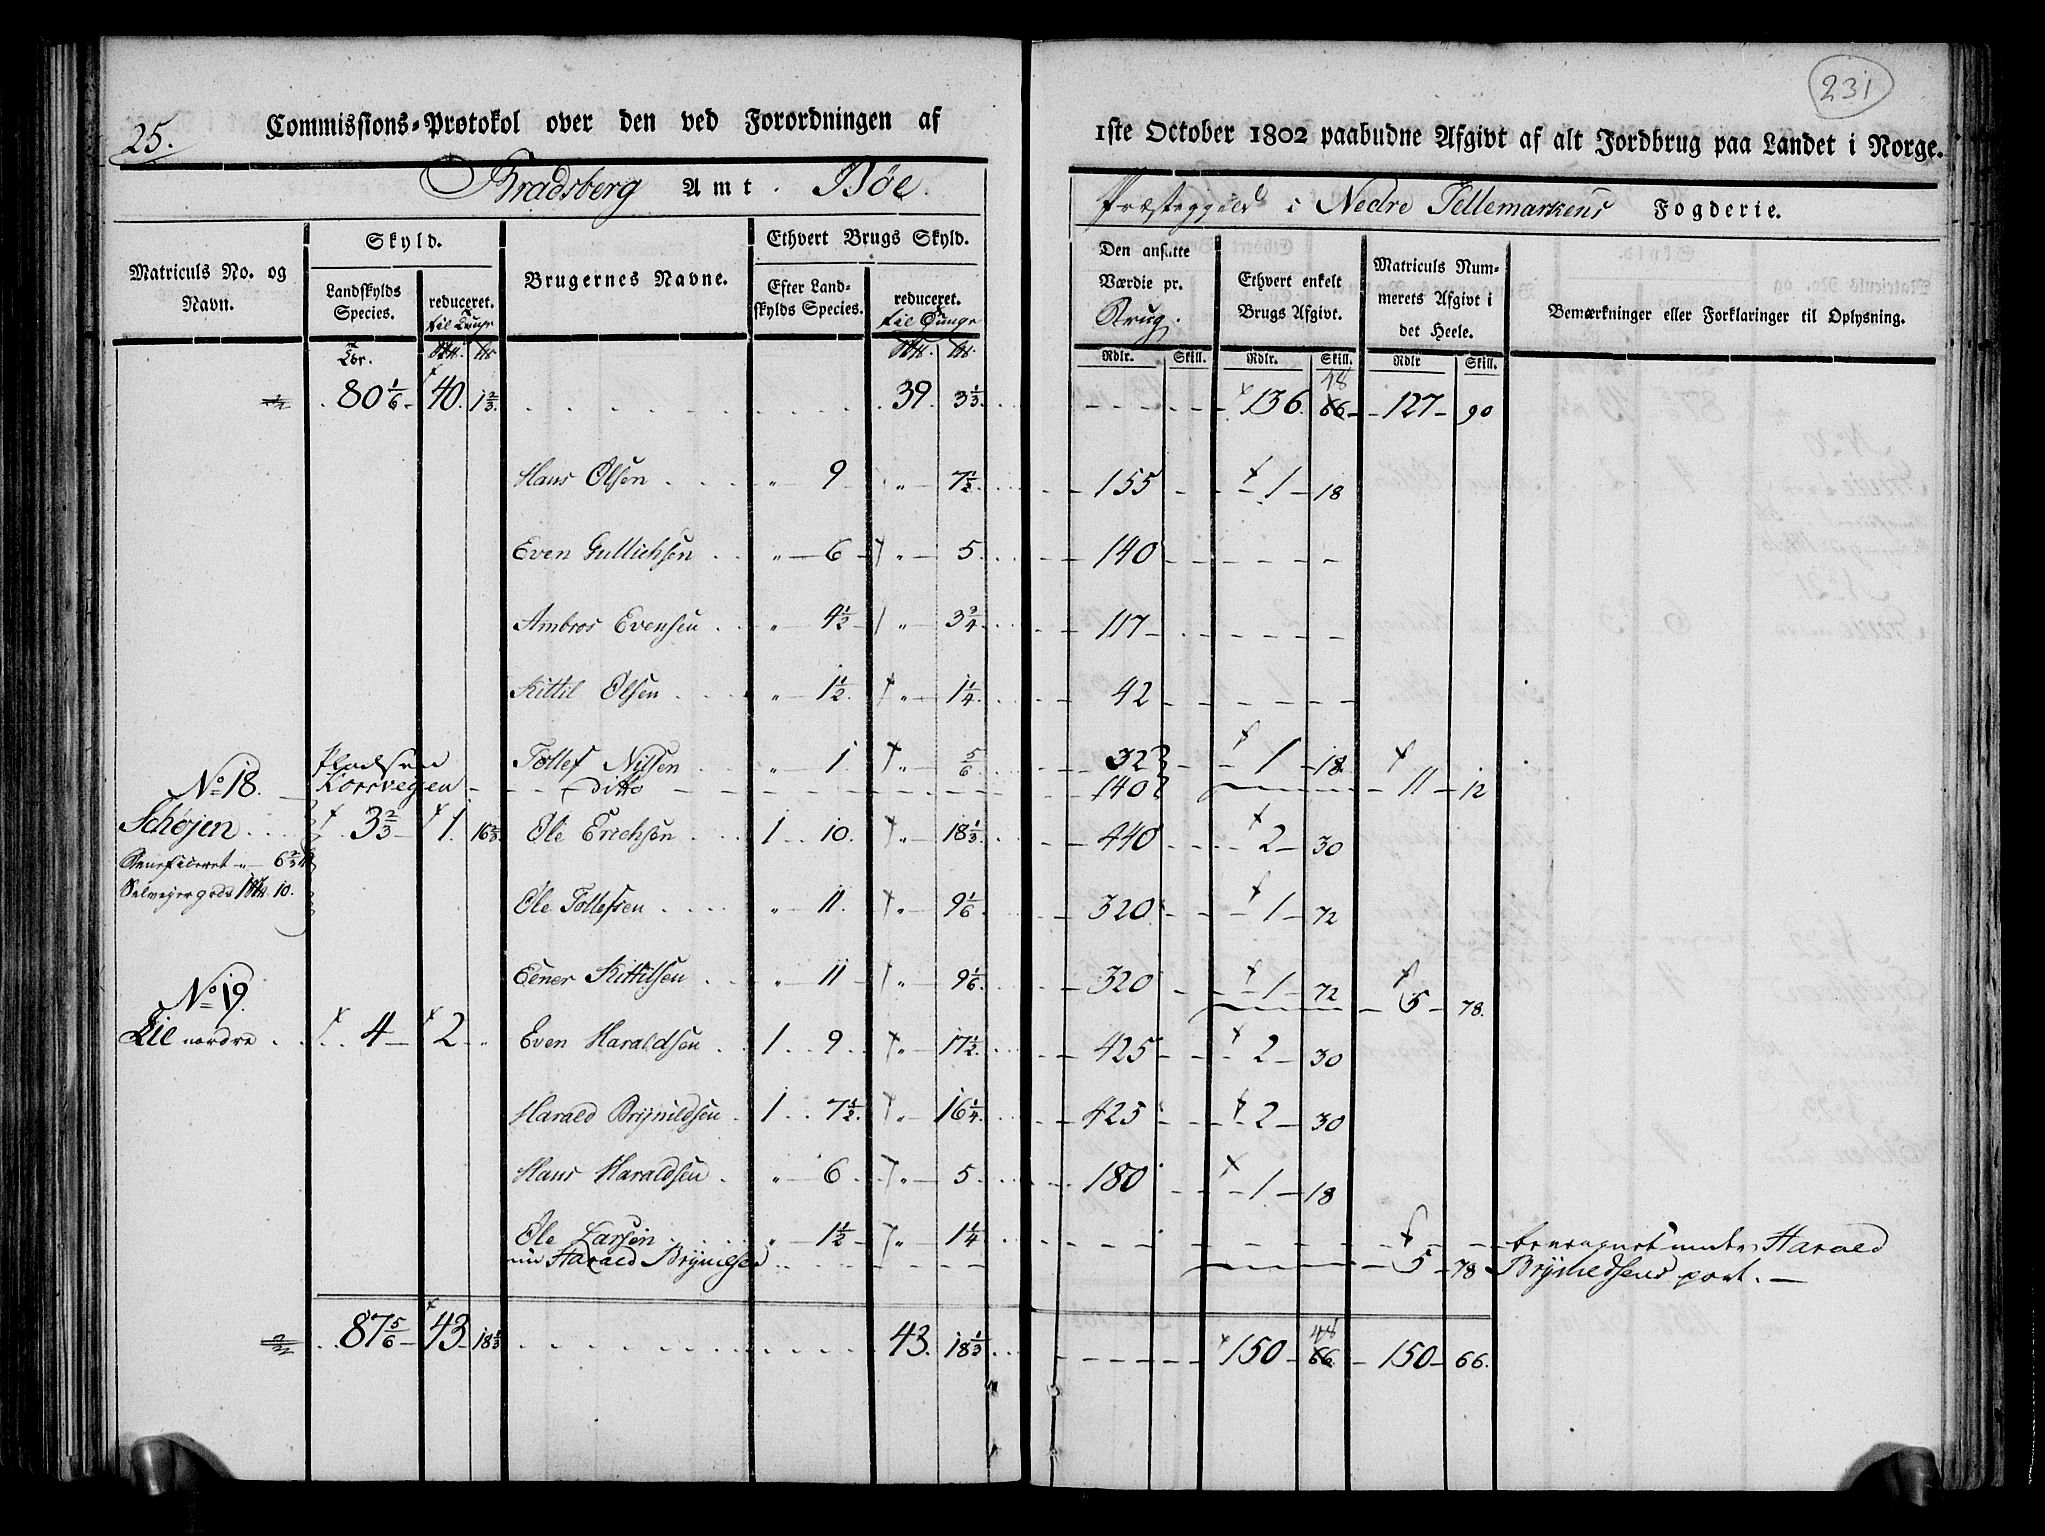 231
25. Commissions-Protokol over den ved Forordningen af 1ste October 1802 paabudne Afgivt af alt Jordbrug paa Landet i Norge.
Bradsberg Amt. Bøe Præstegjeld i Nedre Tellemarkens Fogderie.
Matriculs No. og Navn.
Skyld.
Landskylds Species.
reduceret. til Tunge
Brugernes Navne.
Ethvert Brugs Skyld.
Efter Landskylds Species.
reduceret. til Tunge
Den ansatte Værdie pr. Brug.
Ethvert enkelt Brugs Afgivt.
Matriculs Nummerets Afgivt i det Heele.
Bemærkninger eller Forklaringer til Oplysning.
Rdlr. Skill. Rdlr. Skill. Rdlr Skill.
80 1/6 40. 1 2/3 39. 3 1/3 136. 66 48 127 90
Hans Olsen 9 7 1/2 155 1 18
Even Gullichsen 6 5 140
Ambros Evensen 4 1/2 3 3/4 117
Kittil Olsen 1 1/2 1 1/4 42
Tollef Nilsen 1 5/6 32 1 18
No 18. Pladsen Korsvegen Ditto 140 11 12
Schøjen 3 2/3 1. 16 2/3 Ole Erichsen 1 10. 18 1/3 440 2 30
Beneficeret 6 2/3
Selveyergods 1 10.
Ole Tollefsen 11. 9 1/6 320 1 72
Eener Kittilsen 11 9 1/6 320 1 72 5 78.
No 19.
Lie nordre 4 2 Even Haraldsen 1 9 17 1/2 425 2 30
Harald Brynildsen 1 7 1/2 16 1/4 425 2 30
Hans Haraldsen 6 5 180 1 18
Ole Larsen 1 1/2 1 1/4
nu Harald Brynilsen 5 78
under Harald
Brynildsens part.
87 5/6 43 18 1/3 43. 18 1/3 150 66 48 150 66.